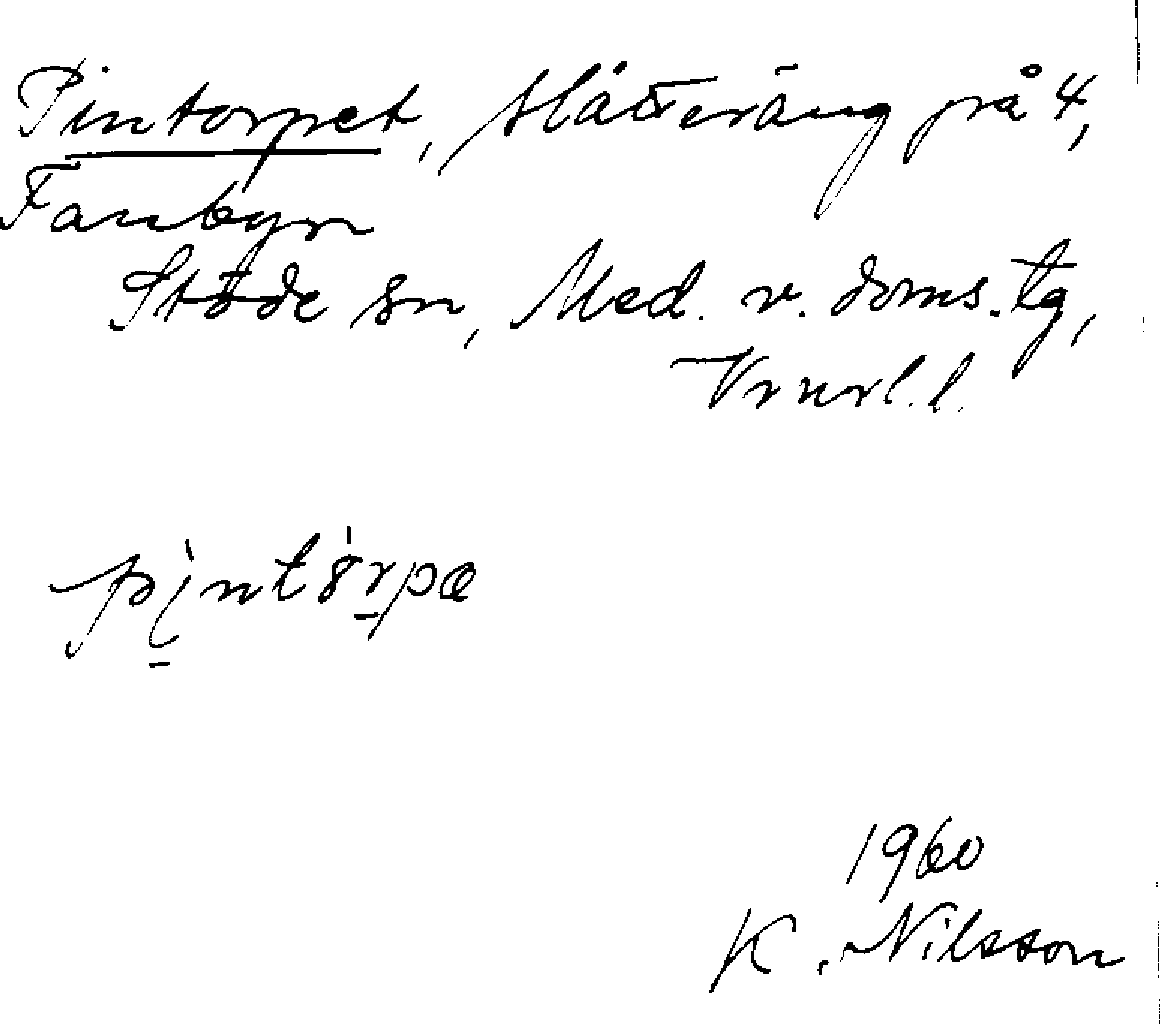 Pintorpet, slåtteräng på 4,
Fanbyn
Stöde sn, Med. v. doms. tg,
Vnrl. l.
pi̱ntörpæ
1960
K. Nilsson